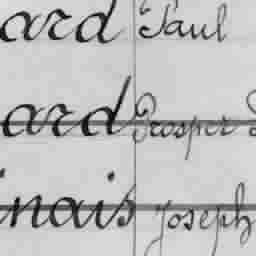 ard Paul
ard Prosper
inais Joseph